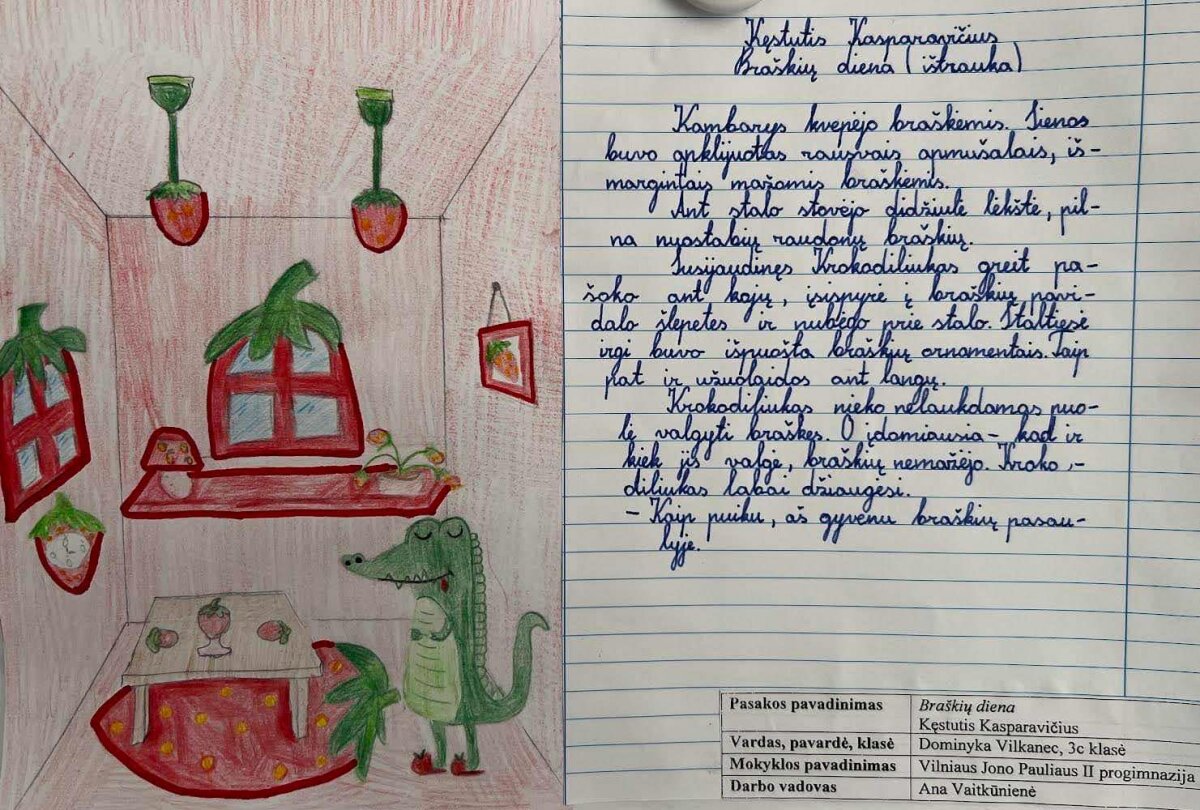 Kęstutis Kasparavičius
Braškių diena (ištrauka)
Kambarys kvepėjo braškėmis. Sienos
buvo apklijuotas rausvais apmušalais, iš-
margintais mažomis braškėmis.
Ant stalo stovėjo didžiulė lėkštė, pil-
na nuostabių raudonų braškių.
Susijaudinęs Krokodiliukas greit pa-
šoko ant kojų, įsispyrė į braškių pavi-
dalo šlepetes ir nubėgo prie stalo. Staltiesė
irgi buvo išpuošta braškių ornamentais. Taip
pat ir užuolaidos ant langų.
Krokodiliukas nieko nelaukdamas puo-
lė valgyti braškes. O įdomiausia - kad ir
kiek jis valgė, braškių nemažėjo. Kroko -
diliukas labai džiaugėsi.
- Kaip puiku, aš gyvenu braškių pasau-
lyje.
Pasakos pavadinimas Braškių diena
Kęstutis Kasparavičius
Vardas, pavardė, klasė Dominyka Vilkanec, 3c klasė
Mokyklos pavadinimas Vilniaus Jono Pauliaus II progimnazija
Darbo vadovas Ana Vaitkūnienė